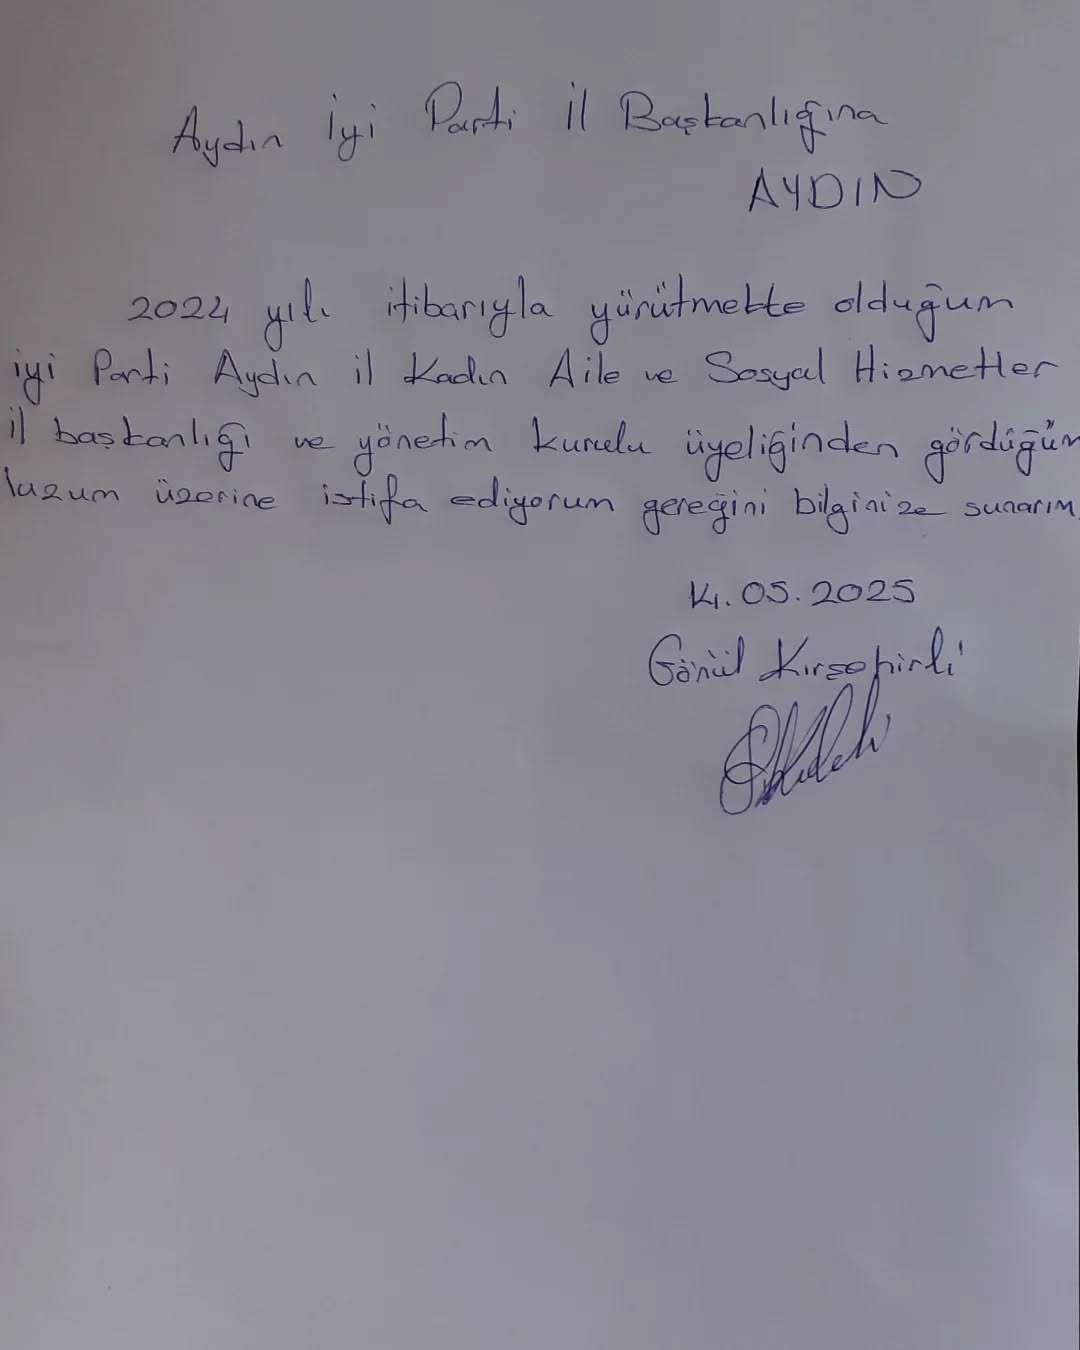 Aydın İyi Parti İl Başkanlığına
AYDIN
2024 yılı itibarıyla yürütmekte olduğum
iyi Parti Aydın il Kadın Aile ve Sosyal Hizmetler
il başkanlığı ve yönetim kurulu üyeliğinden gördüğüm
luzum üzerine istifa ediyorum gereğini bilginize sunarım
14.05.2025
Gönül Kırşehirli